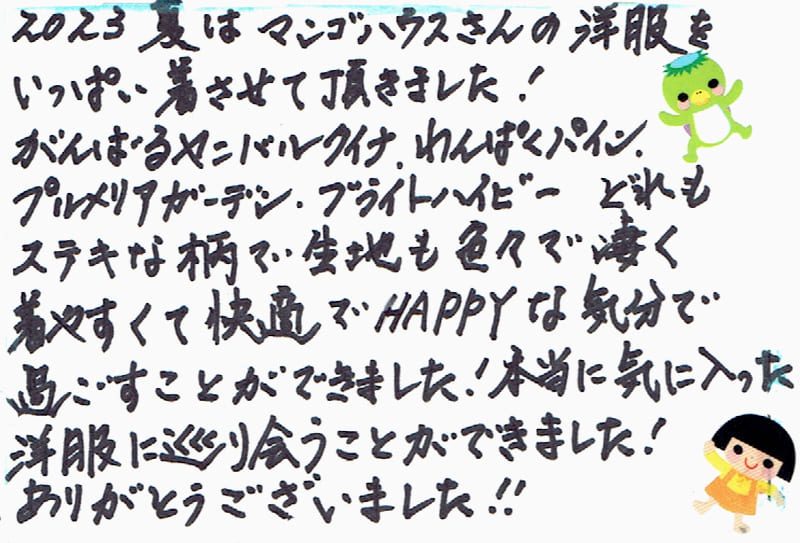 2023夏は マンゴハウスさんの 洋服を
いっぱい 着させて頂きました!
がんばるヤンバルクイナ、わんぱくパイン、
プルメリアガーデン・ブライトハイビー どれも
ステキな柄で 生地も色々で凄く
着やすくて快適でHAPPYな気分で
過ごすことができました!本当に気に入った
洋服に巡り会うことができました!
ありがとうございました!!